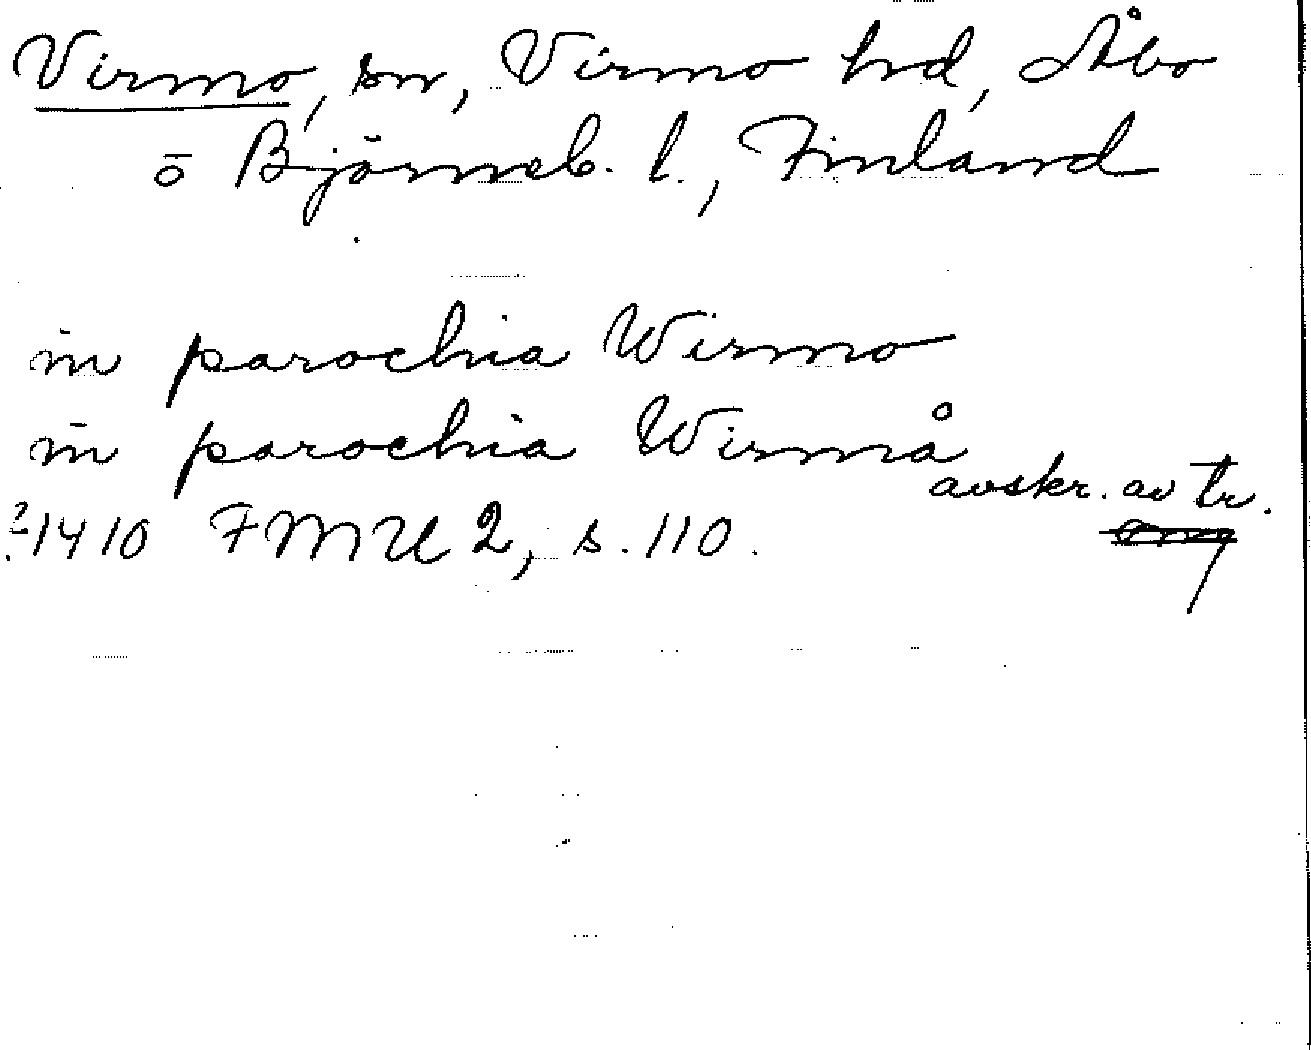 Virmo, sn, Virmo hd, Åbo
o Björneb. l., Finland
in parochia Wirmo
in parochia Wirmå
avskr. av tr.
1410 FMU 2, s. 110.